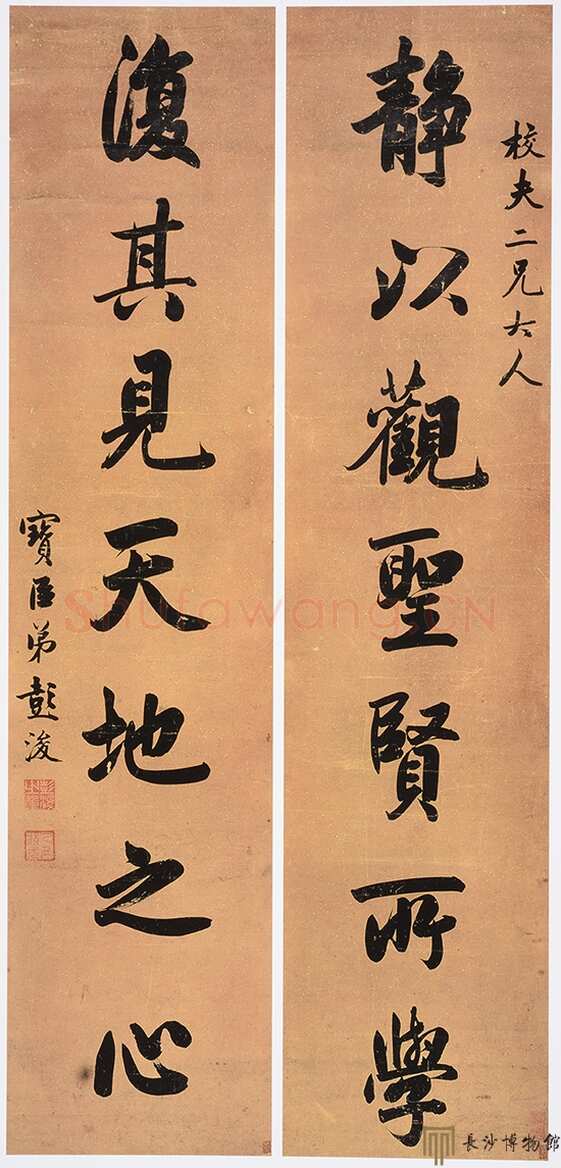 校夫二兄大人
静以觀聖賢所學
復其見天地之心
寶臣弟彭浚
Shufawang.CN
長沙博物館